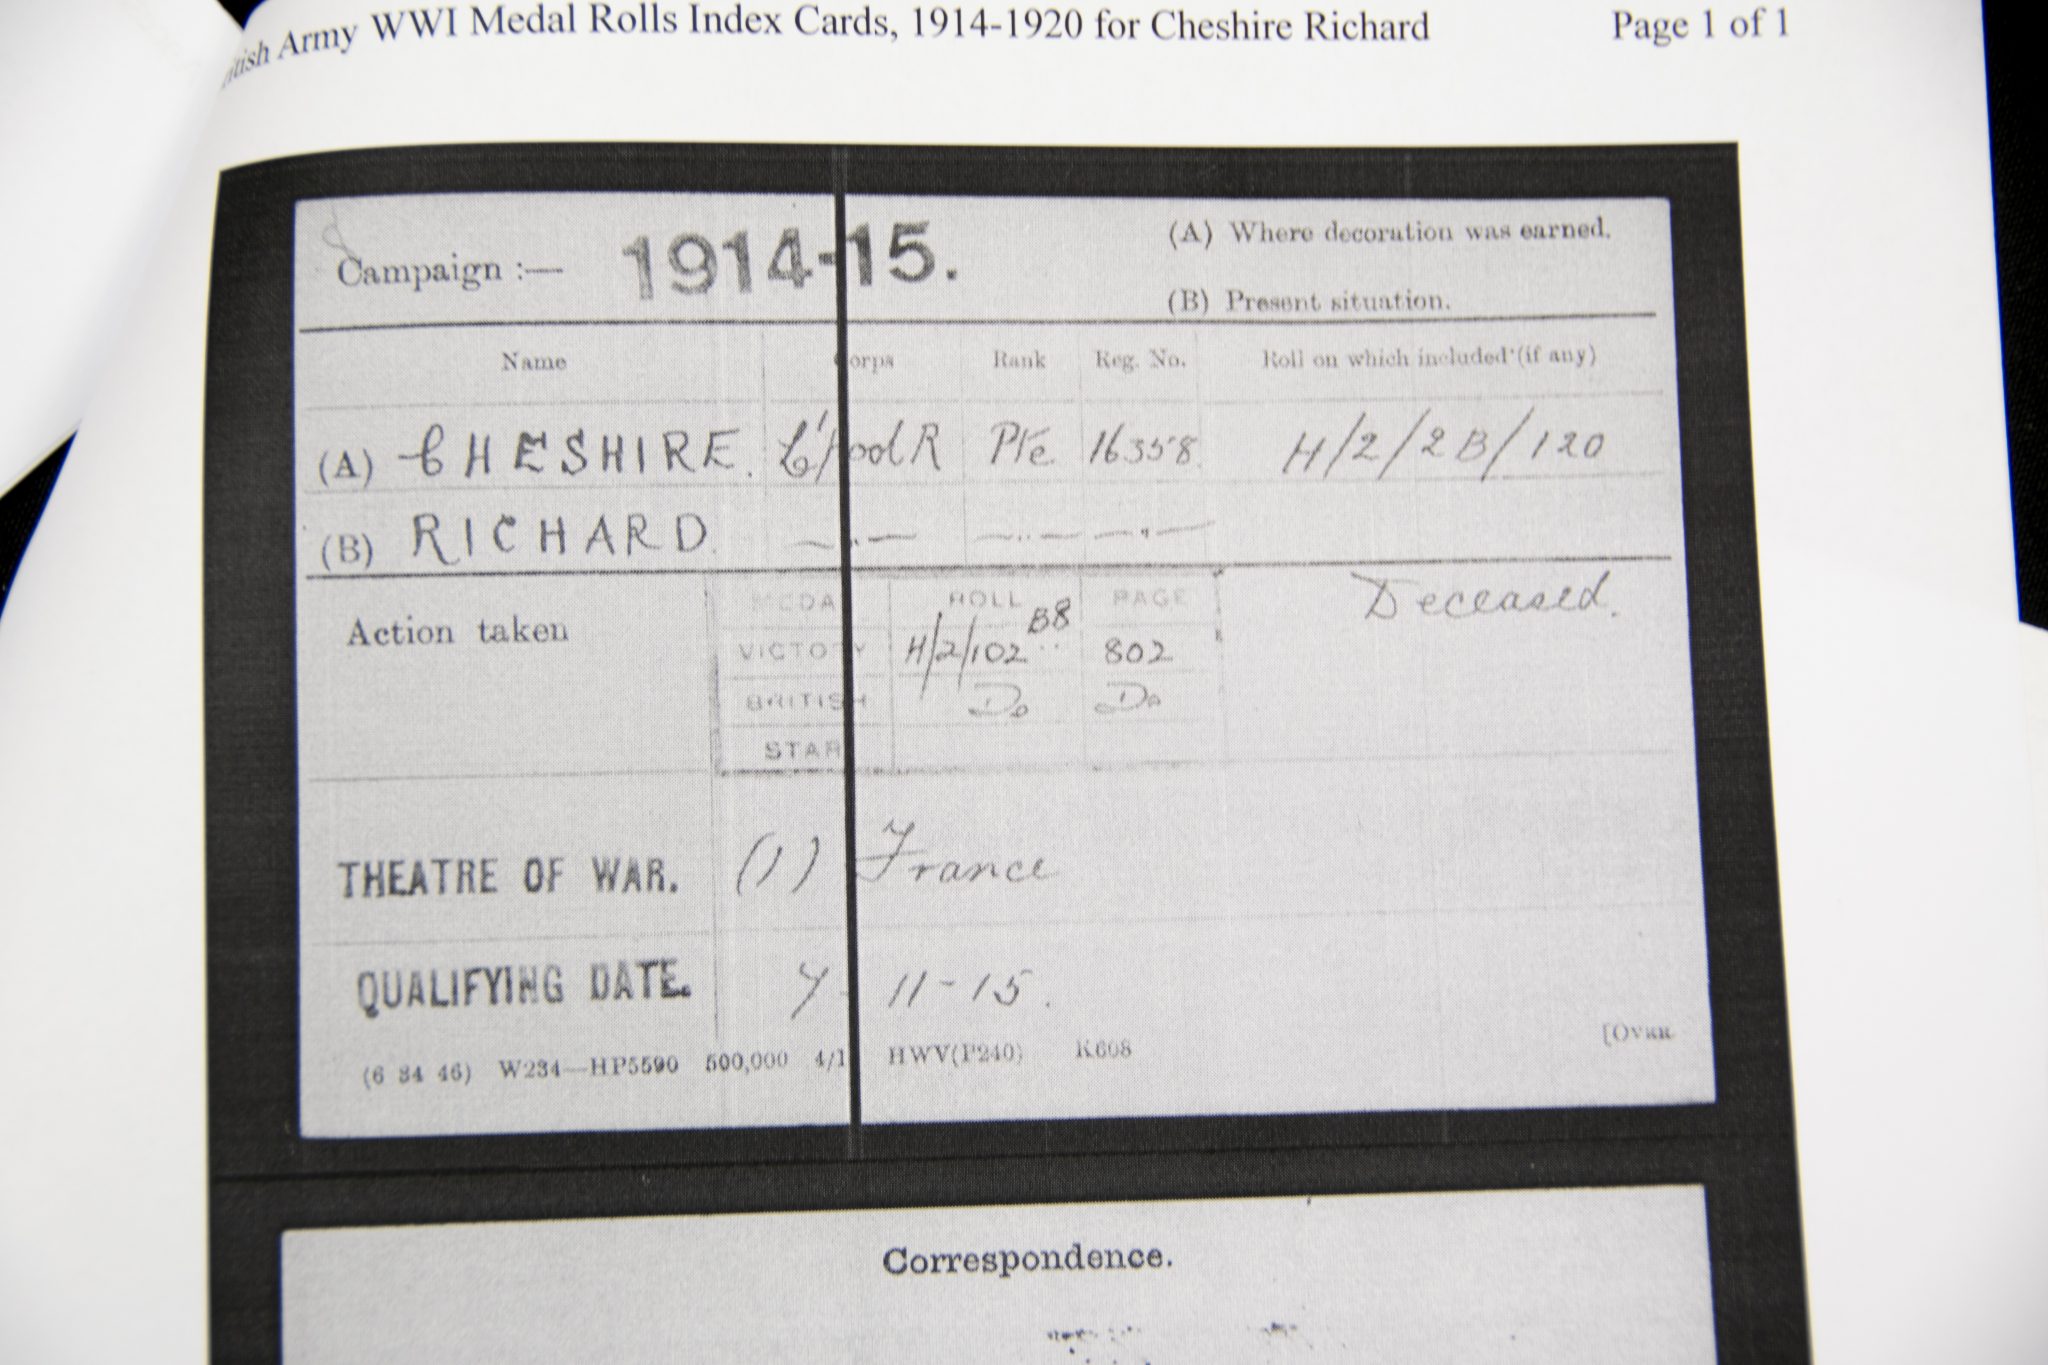 itish Army WWI Medal Rolls Index Cards, 1914-1920 for Cheshire Richard Page 1 of 1
Campaign :— 1914-15. (A) Where decoration was earned.
(B) Present situation.
Name orps Rank Reg. No. Roll on which included (if any)
(A) CHESHIRE. L'pool R Pte 16358 H/2/2B/120
(B) RICHARD — " — — " — — " —
Action taken MEDA ROLL PAGE Deceased.
VICTO Y H/2/102 B8 802
BRITISH Do Do
STAR
THEATRE OF WAR. (1) France
QUALIFYING DATE. 7 11-15.
(6 34 46) W234—HP5590 500,000 4/1 HWV(P240) K608 [OVER
Correspondence.